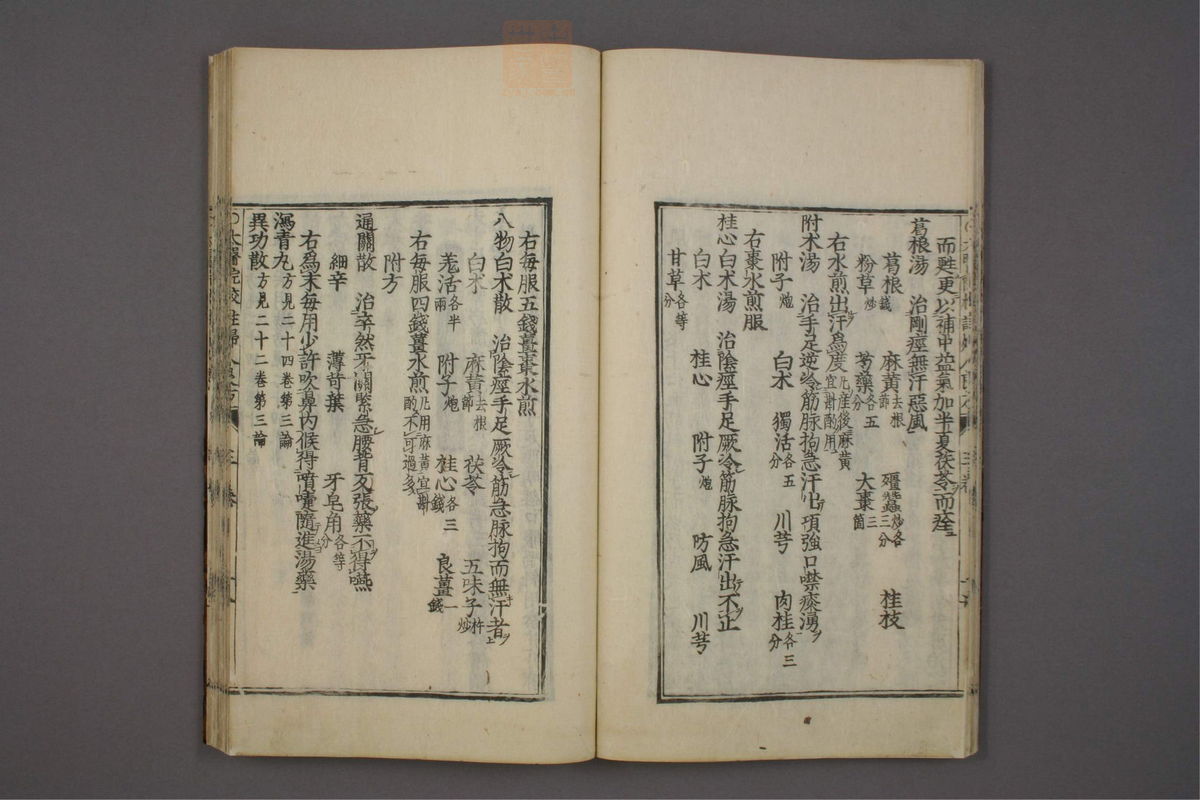 而甦更以補中益氣加半夏茯苓而痊
葛根湯 治剛痙無汗惡風
葛根錢 麻黃去根節 殭蠶炒各三分 桂枝
粉草炒 芍藥各五分 大棗三箇
右水煎出汗爲度凡產後麻黃宜斟酌用
附木湯 治手足逆冷筋脉拘急汗出項強口噤痰湧
附子炮 白朮 獨活各五分 川芎 肉桂各三分
右棗水煎服
桂心白朮湯 治陰痙手足厥冷筋脉拘急汗出不止
白朮 桂心 附子炮 防風 川芎
甘草各等分
右每服五錢薑棗水煎
八物白朮散 治陰痙手足厥冷筋急脉拘而無汗者
白朮 麻黃去根節 茯苓 五味子杵炒
羗活各半兩 附子炮 桂心各三錢 良薑一錢
右每服四錢薑水煎凡用麻黃宜斟酌不可過多
附方
通關散 治卒然牙關緊急腰背反張藥不得嚥
細辛 薄苛葉 牙皂角各等分
右爲末每用少許吹鼻内候得噴嚏隨進湯藥
瀉青丸方見二十四卷第三論
異功散方見二十二卷第三論